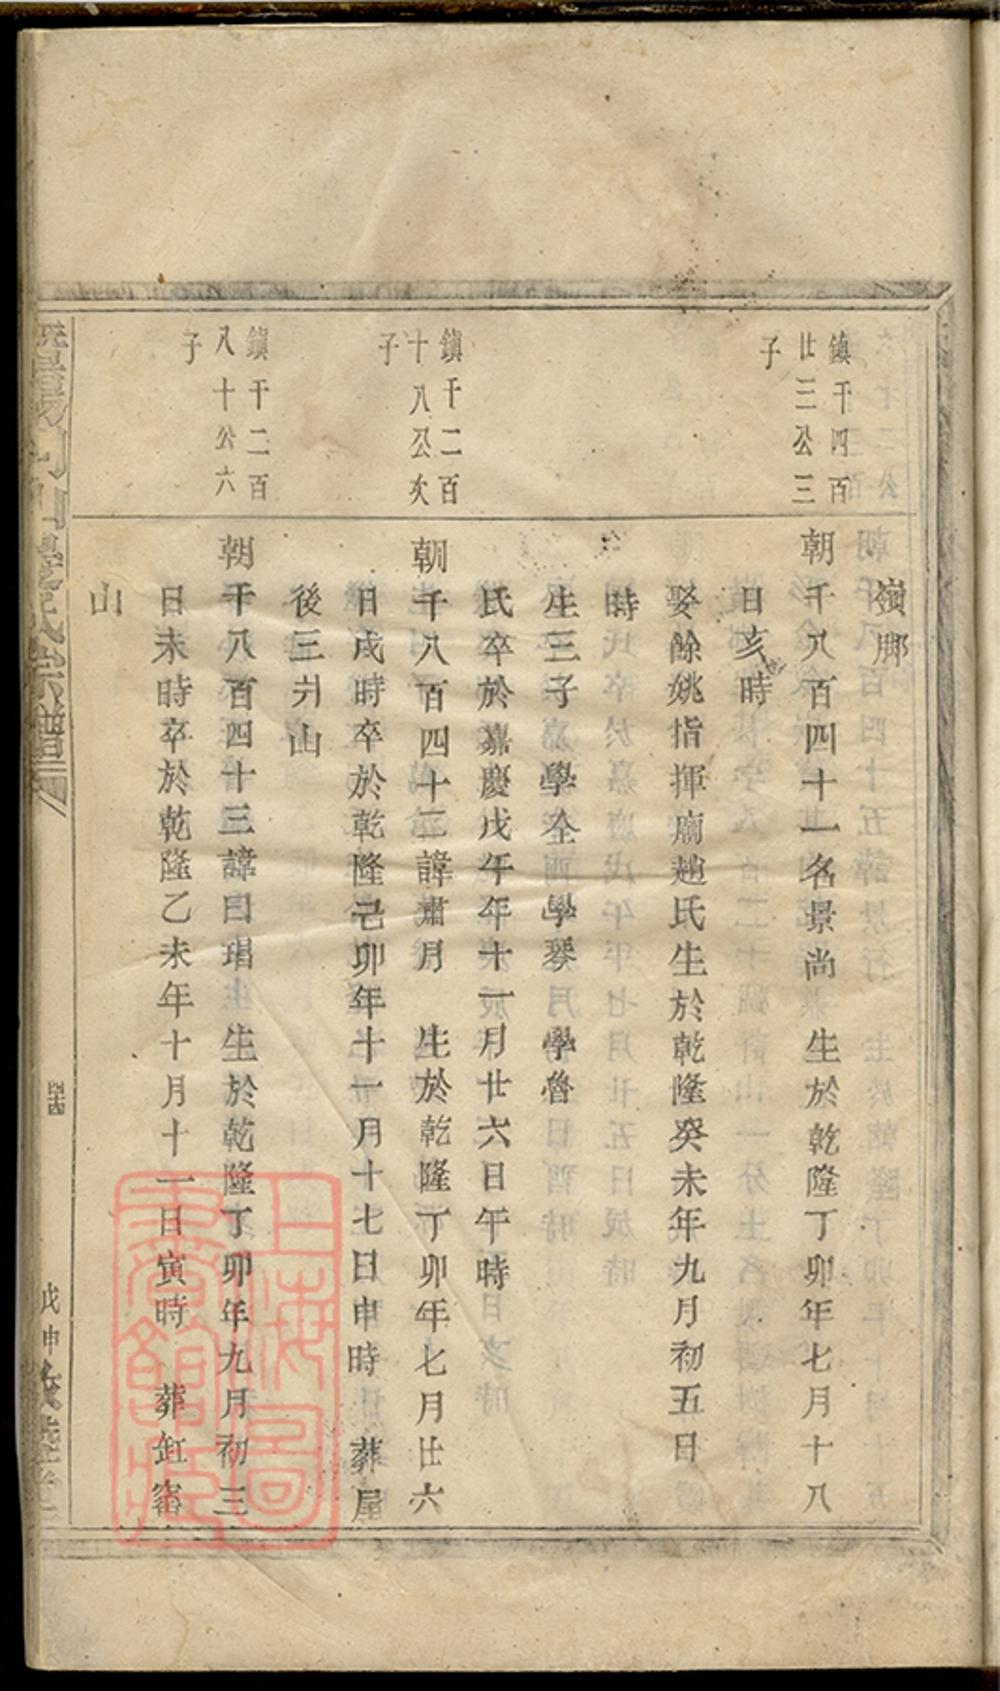 嶺脚
鎮千四百
廿三公三
子
朝千八百四十一名景尚 生於乾隆丁卯年七月十八
日亥時
娶餘姚指揮廟趙氏生於乾隆癸未年九月初五日
時
生三子 學全 學琴 學魯
氏卒於嘉慶戊午年十一月廿六日午時
鎮千二百
十八公次
子
朝千八百四十二諱肅月 生於乾隆丁卯年七月廿六
日戌時卒於乾隆己卯年十一月十七日申時 葬屋
後三爿山
鎮千二百
八十公六
子
朝千八百四十三諱曰琩 生於乾隆丁卯年九月初三
日未時卒於乾隆乙未年十月十一日寅時 葬缸窰
山
氏宗譜
戊申
上海圖書館藏